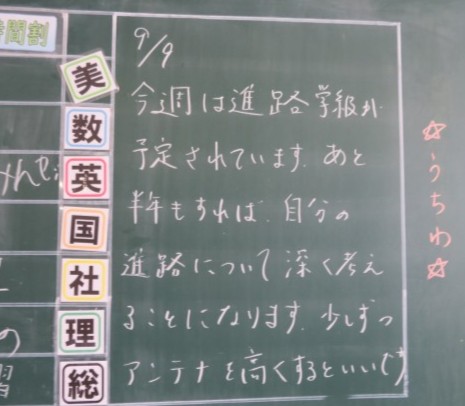 時間割
美
数
英
国
社
理
総
9/9
今週は進路学級が
予定されています。あと
半年もすれば、自分の
進路について深く考え
ることになります。少しずつ
アンテナを高くするといい
☆うちわ☆
の
習